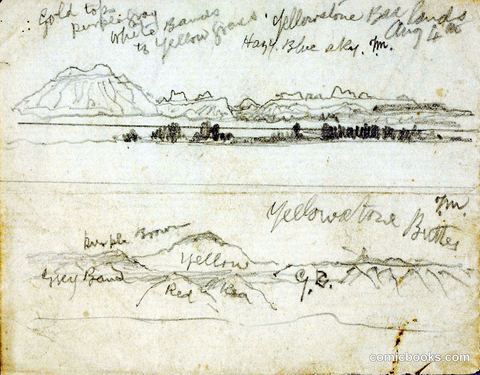 Gold tops
Purple Gray
White Bands
to Yellow Grass.
Yellowstone Bad lands
Aug 4
Hazy Blue sky. M.
Yellowstone Buttes
M.
Purple Brown
Yellow
Grey Band
Red &
comicbooks.com